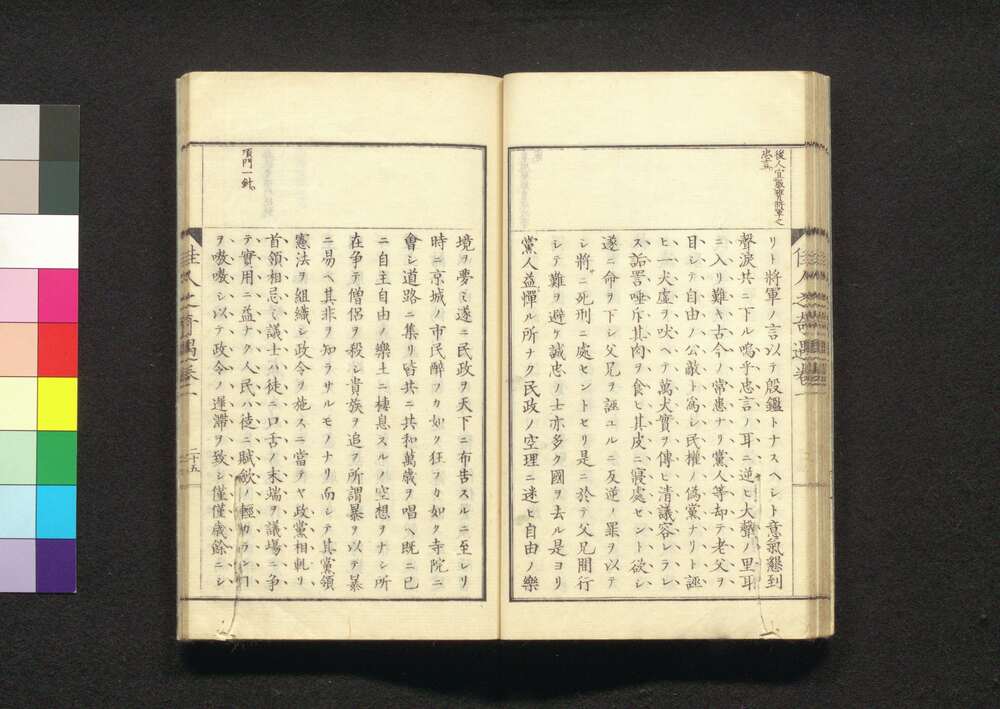 後人宜服膺將軍之
忠言
リト將軍ノ言以テ殷鑑トナスヘシト意氣懇到
聲淚共ニ下ル嗚乎忠言ノ耳ニ逆ヒ大聲ノ里耳
ニ入リ難キ古今ノ常患ナリ黨人等却テ老父ヲ
目シテ自由ノ公敵ト爲シ民權ノ僞黨ナリト誣
ヒ一犬虛ヲ吠ヘテ萬犬實ヲ傳ヒ淸議容レラレ
ス詬詈唾斥其肉ヲ食ヒ其皮ニ寢處セント欲シ
遂ニ命ヲ下シ父兄ヲ誣ユルニ反逆ノ罪ヲ以テ
シ將ニ死刑ニ處セントセリ是ニ於テ父兄間行
シテ難ヲ避ケ誠忠ノ士亦多ク國ヲ去ル是ヨリ
黨人益憚ル所ナク民政ノ空理ニ迷ヒ自由ノ樂
佳人之奇遇卷二
項門一針
境ヲ夢ミ遂ニ民政ヲ天下ニ布告スルニ至レリ
時ニ京城ノ市民醉フカ如ク狂フカ如ク寺院ニ
會シ道路ニ集リ皆共ニ共和萬歲ヲ唱ヘ既ニ已
ニ自主自由ノ樂土ニ棲息スルノ空想ヲナシ所
在争テ僧侶ヲ殺シ貴族ヲ追フ所謂暴ヲ以テ暴
ニ易ヘ其非ヲ知ラサルモノナリ而シテ其黨領
憲法ヲ組織シ政令ヲ施スニ當テヤ政黨相軋リ
首領相忌ミ議士ハ徒ニ口舌ノ末端ヲ議場ニ争
テ實用ニ益ナク人民ハ徒ニ賦歛ノ輕カラン
ヲ嗷嗷シ以テ政令ノ遲滯ヲ致シ僅僅歲餘ニシ
佳人之奇遇卷二
二十五